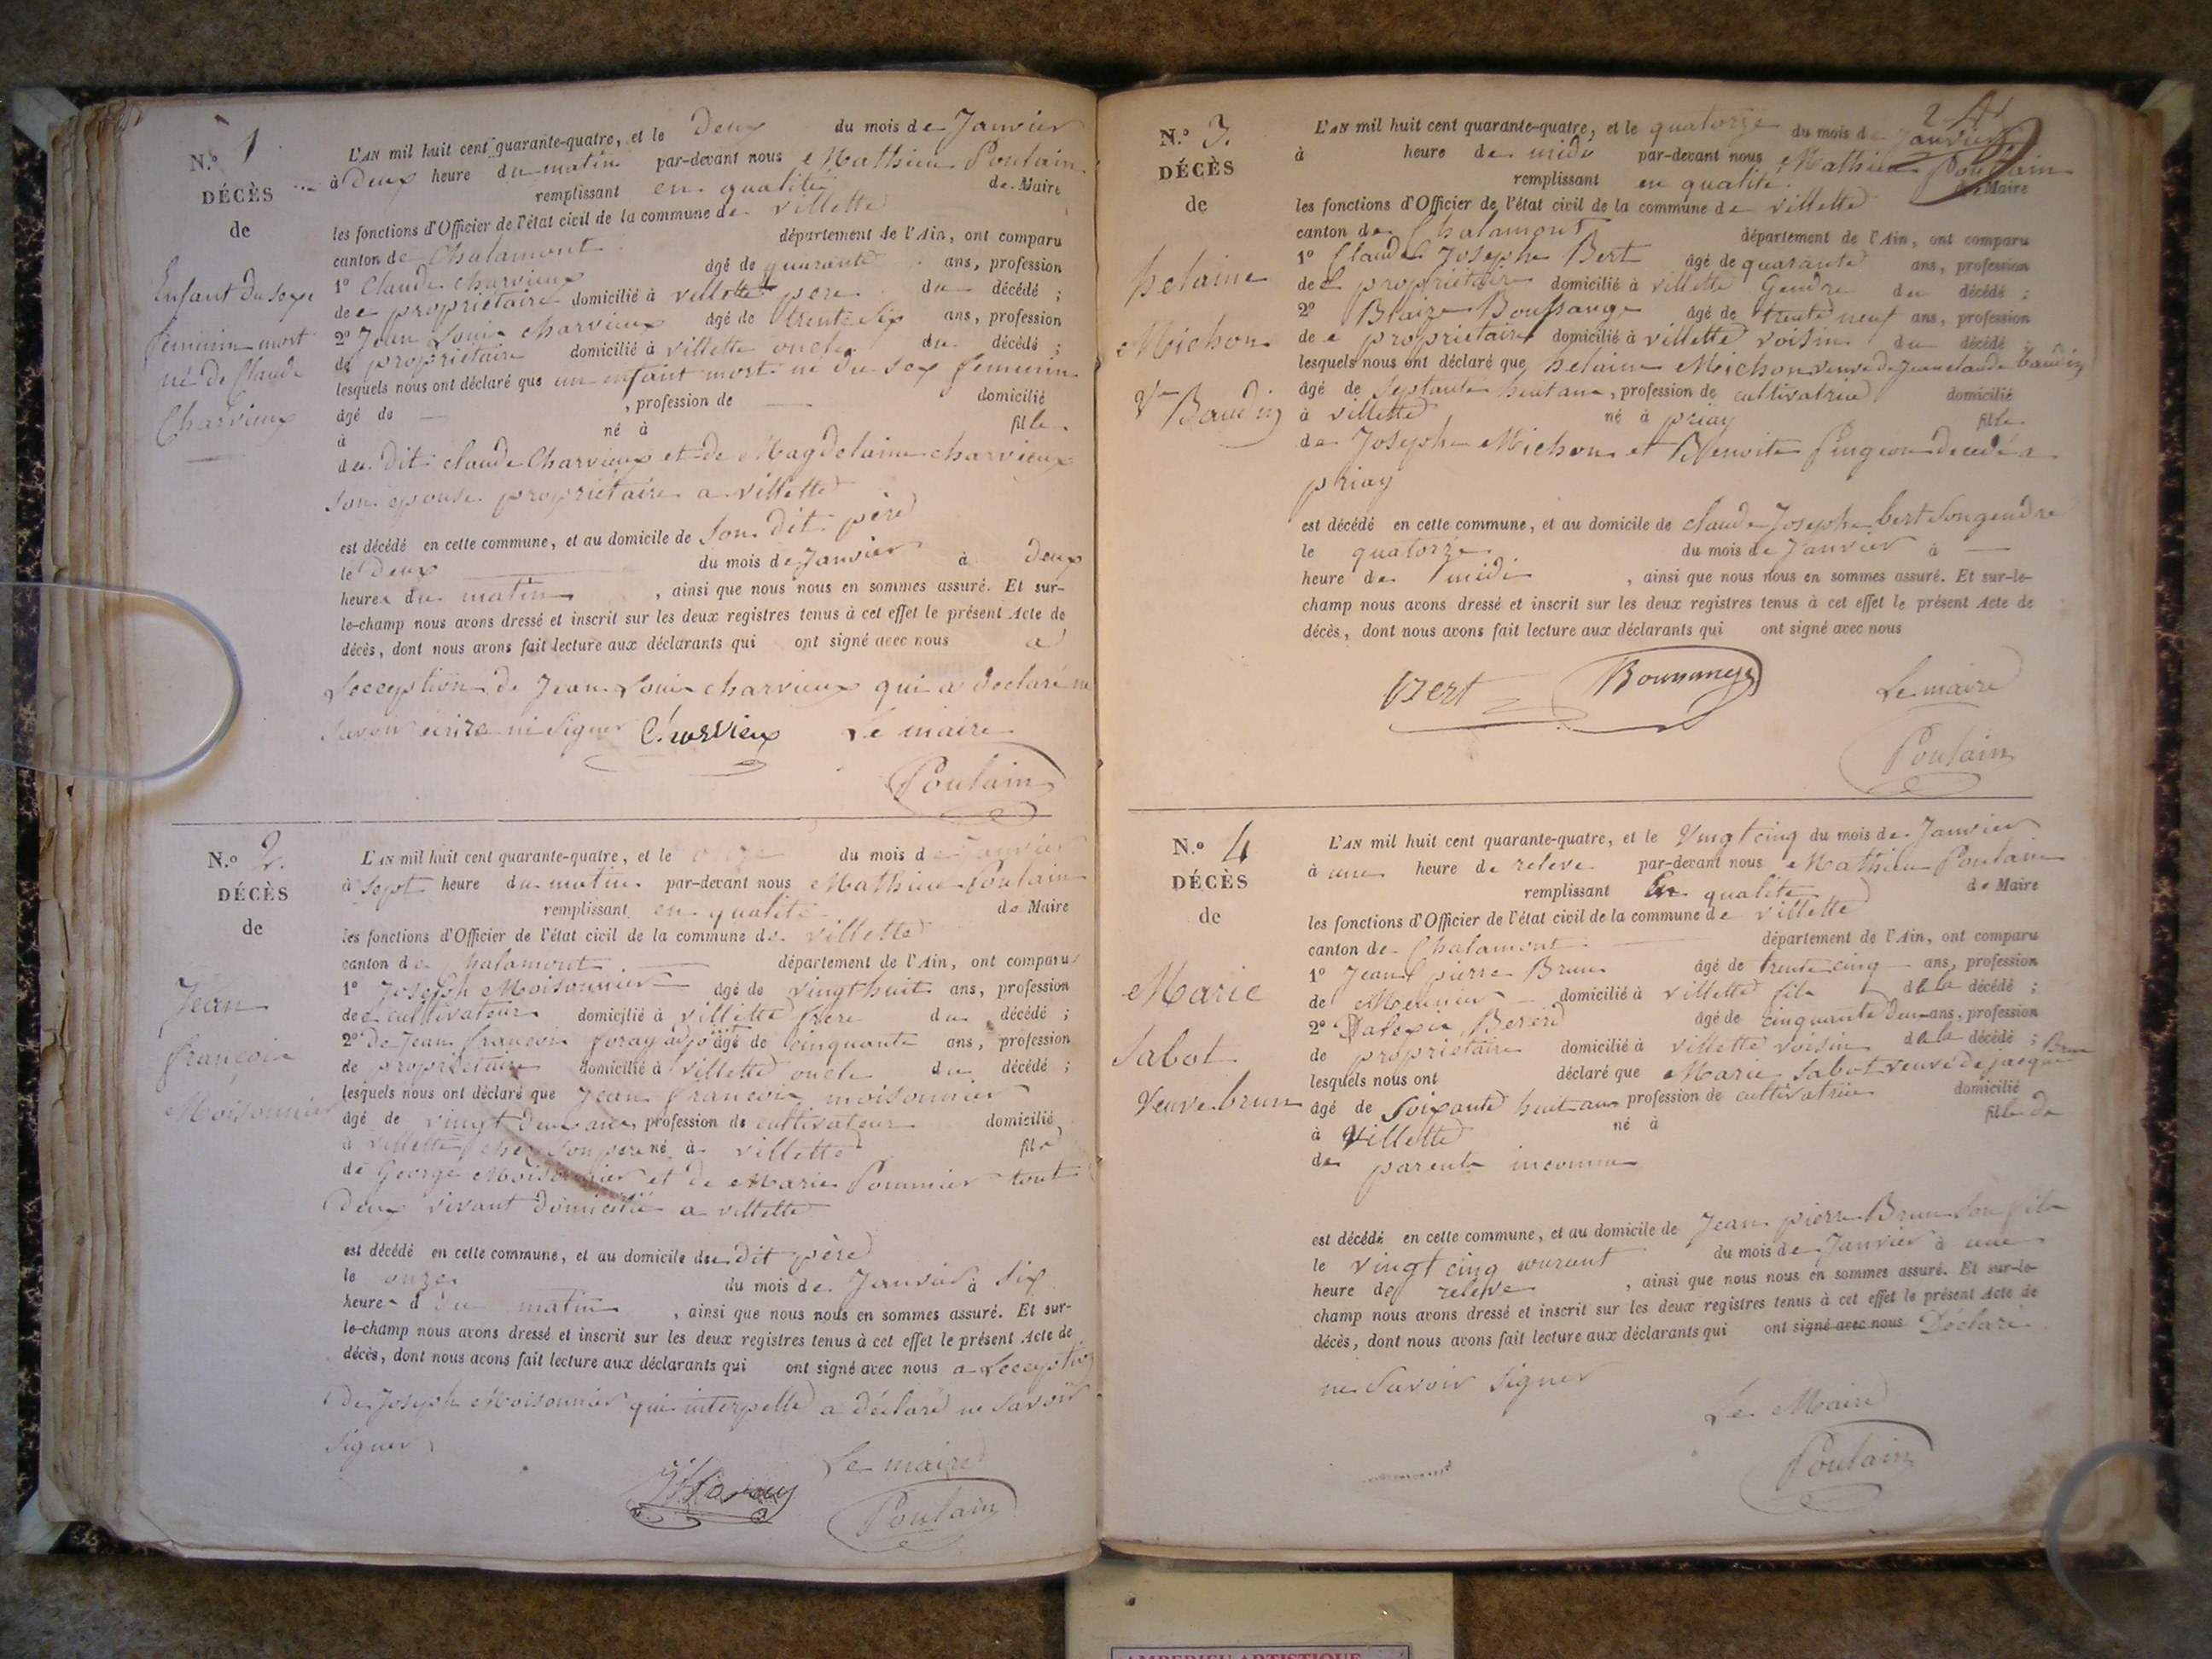 N.º 1
DÉCÈS
de
Enfant du sexe
feminin mort
né de Claude
Charvieux
L'AN mil huit cent quarante-quatre, et le Deux du mois de Janvier
à Deux heure du matin par-devant nous Mathieu Poulain
remplissant en qualité de Maire
les fonctions d'Officier de l'état civil de la commune de villette
canton de Chalamont département de l'Ain, ont comparu
1º Claude Charvieux âgé de quarante ans, profession
de propriétaire domicilié à villette pere du décédé ;
2º Jean Louis charvieux âgé de trente Six ans, profession
de propriétaire domicilié à villette oncle du décédé ;
lesquels nous ont déclaré que un enfant mort né du sex feminin
âgé de — , profession de — domicilié
à né à fille
du dit claude Charvieux et de Magdelaine charvieux
son epouse propriétaire a villette
est décédé en cette commune, et au domicile de Son Dit père
le Deux du mois de Janvier à Deux
heures du matin , ainsi que nous nous en sommes assuré. Et sur-
le-champ nous avons dressé et inscrit sur les deux registres tenus à cet effet le présent Acte de
décès, dont nous avons fait lecture aux déclarants qui ont signé avec nous a
Lecception de Jean Louis charvieux qui a déclaré ne
savoir écrire ni Signer Charvieux Le maire
Poulain
N.º 2.
DÉCÈS
de
Jean
françois
Moisonnier
L'AN mil huit cent quarante-quatre, et le onze du mois de Janvier
à Sept heure du matin par-devant nous Mathieu Poulain
remplissant en qualité de Maire
les fonctions d'Officier de l'état civil de la commune de villette
canton de Chalamont département de l'Ain, ont comparu
1º Joseph Moisonnier âgé de vingt huit ans, profession
de cultivateur domicilié à villette frere du décédé ;
2º De Jean francois foray adjoit âgé de cinquante ans, profession
de propriétaire domicilié à villette oncle du décédé ;
lesquels nous ont déclaré que Jean francois moisonnier
âgé de vingt Deux ans, profession de cultivateur domicilié
à villette chez son pere né à villette fils
de George Moisonnier et de Marie Pommier tout
Deux vivant Domicilié a villette
est décédé en cette commune, et au domicile du Dit père
le onze du mois de Janvier à Six
heures du matin , ainsi que nous nous en sommes assuré. Et sur-
le-champ nous avons dressé et inscrit sur les deux registres tenus à cet effet le présent Acte de
décès, dont nous avons fait lecture aux déclarants qui ont signé avec nous a Lecception
De Joseph Moisonnier qui interpellé a déclaré ne Savoir
Signer
Le maire
Poulain
24
N.º 3.
DÉCÈS
de
helaine
Michon
Vve Baudin
L'AN mil huit cent quarante-quatre, et le quatorze du mois de Janvier
à heure de midi par-devant nous Mathieu Poulain
remplissant en qualité de Maire
les fonctions d'Officier de l'état civil de la commune de villette
canton de Chalamont département de l'Ain, ont comparu
1º Claude Josephe Bert âgé de quarante ans, profession
de propriétaire domicilié à villette Gendre du décédé ;
2º Blaize Boussange âgé de trente neuf ans, profession
de propriétaire domicilié à villette voisin du décédé ;
lesquels nous ont déclaré que helaine Michon veuve de Jean claude baudin
âgé de septante huit ans, profession de cultivatrice domicilié
à villette né à priay fille
de Josephe Michon et Benoite Pingeon decedé a
priay
est décédé en cette commune, et au domicile de claude Josephe bert Son gendre
le quatorze du mois de Janvier à —
heure de midi , ainsi que nous nous en sommes assuré. Et sur-le-
champ nous avons dressé et inscrit sur les deux registres tenus à cet effet le présent Acte de
décès, dont nous avons fait lecture aux déclarants qui ont signé avec nous
Bert Boussange Le maire
Poulain
N.º 4
DÉCÈS
de
Marie
Sabot
Veuve brun
L'AN mil huit cent quarante-quatre, et le Vingt cinq du mois de Janvier
à une heure de releve par-devant nous Mathieu Poulain
remplissant En qualité de Maire
les fonctions d'Officier de l'état civil de la commune de villette
canton de Chalamont département de l'Ain, ont comparu
1º Jean pierre Brun âgé de trente cinq ans, profession
de Meunier domicilié à villette fils de la décédé ;
2º âgé de cinquante Deux ans, profession
de propriétaire domicilié à villette voisin de la décédé ;
lesquels nous ont déclaré que Marie Sabot veuve de jacque Brun
âgé de Soixante huit ans profession de cultivatrice domicilié
à Villette né à fille de
de parents inconnu
est décédé en cette commune, et au domicile de Jean pierre Brun Son fils
le vingt cinq courant du mois de Janvier à une
heure de releve , ainsi que nous nous en sommes assuré. Et sur-le-
champ nous avons dressé et inscrit sur les deux registres tenus à cet effet le présent Acte de
décès, dont nous avons fait lecture aux déclarants qui ont signé avec nous Déclaré
ne Savoir Signer
Le Maire
Poulain